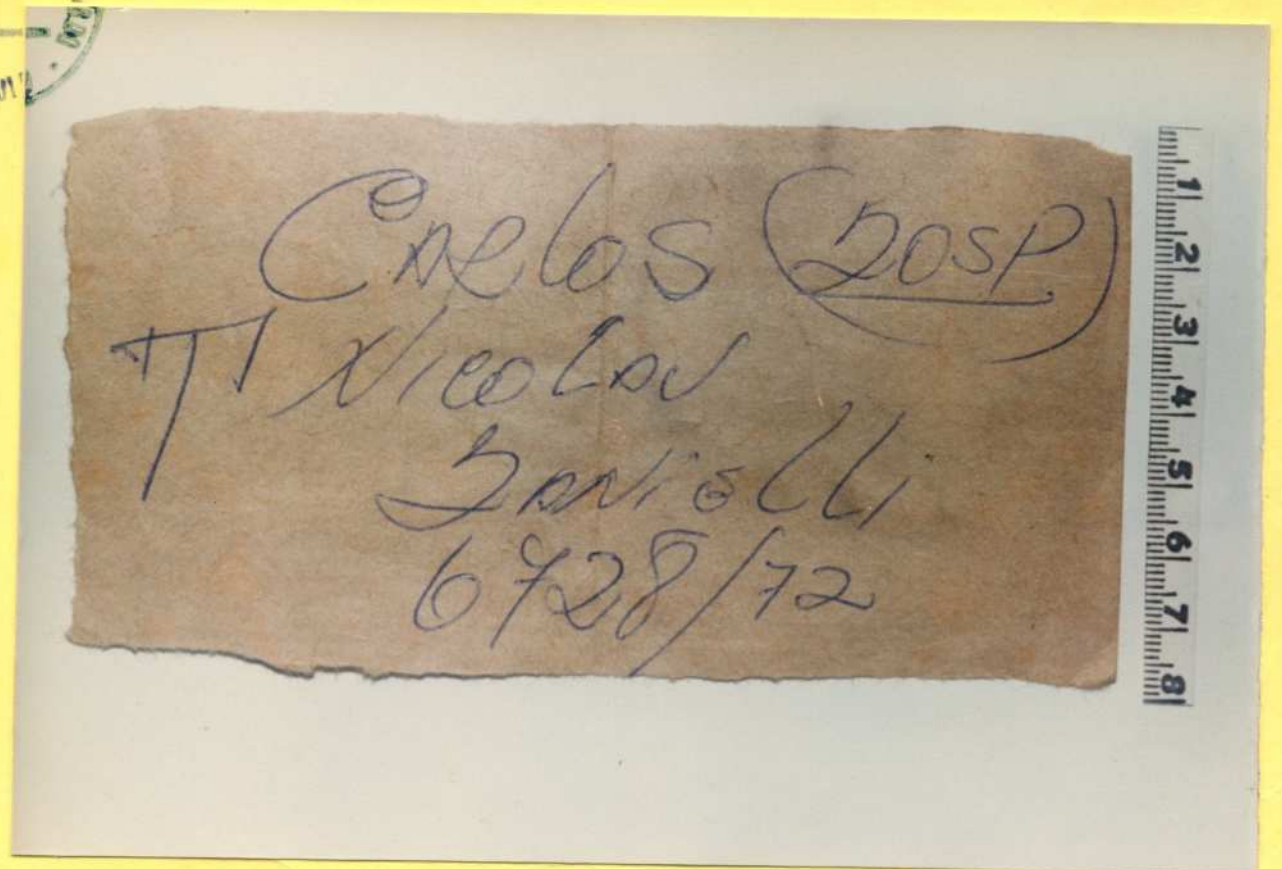 Carlos (DOSP)
T' Nicolau
Danielli
6728/72
1 2 3 4 5 6 7 8